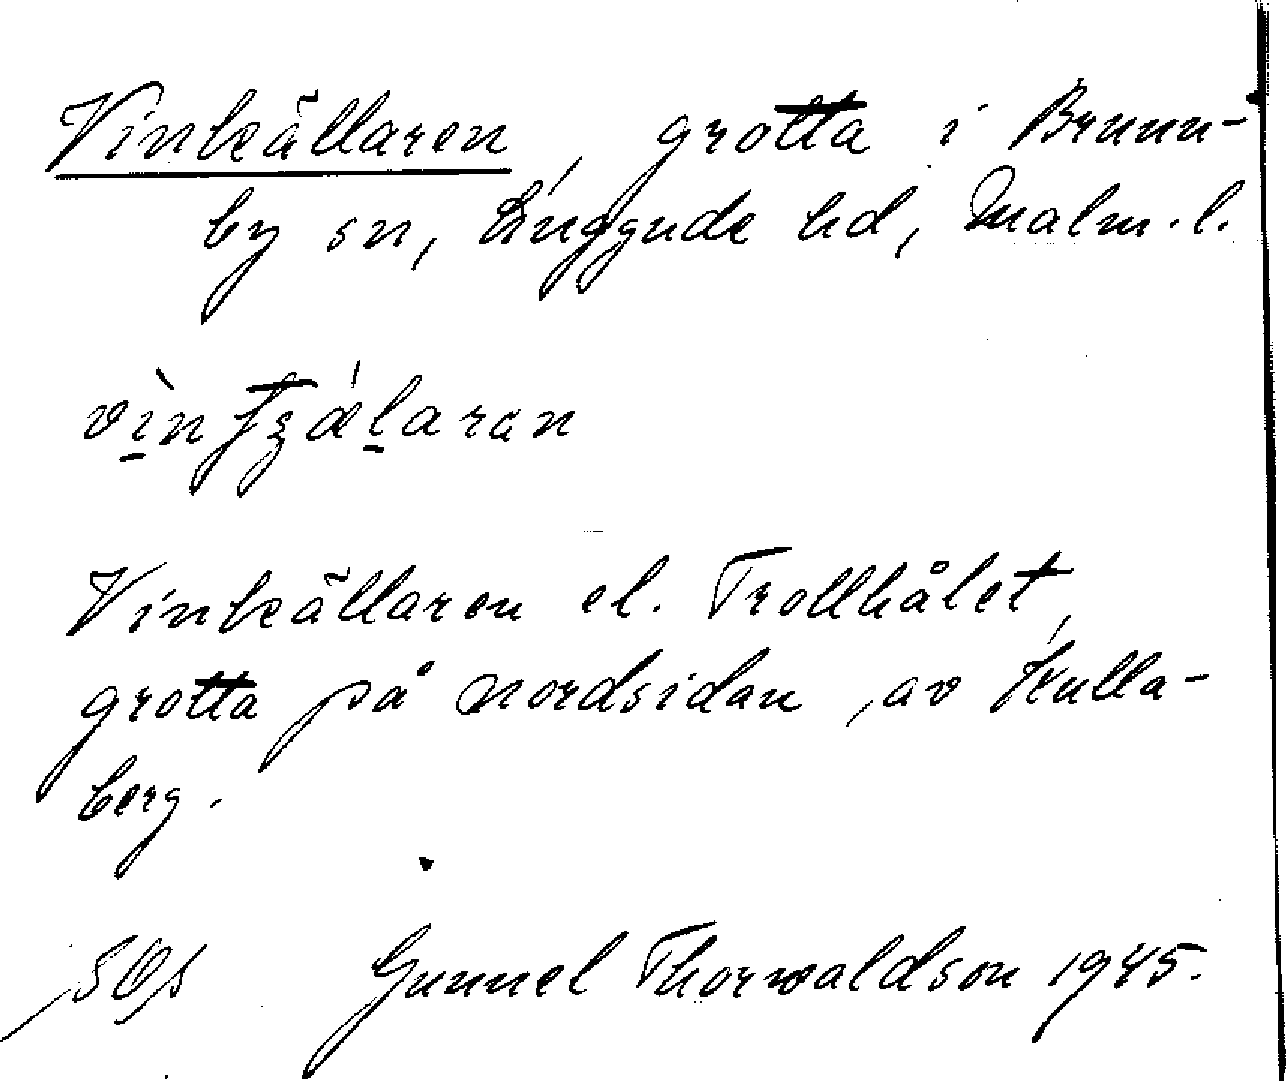 Vinkällaren, grotta i Brunn-
by sn, Luggude hd, Malm. l.
Vinkällaren el. Trollhålet,
grotta på nordsidan av Kulla-
berg.
Gunnel Thorwaldson 1945.